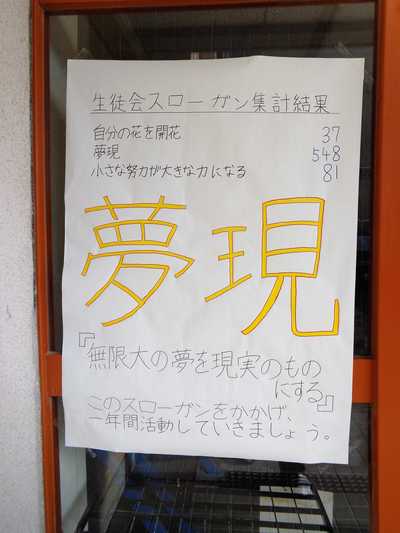 生徒会スローガン集計結果
自分の花を開花 37
夢現 548
小さな努力が大きな力になる 81
夢現
『無限大の夢を現実のもの
にする』
このスローガンをかかげ、
一年間活動していきましょう。